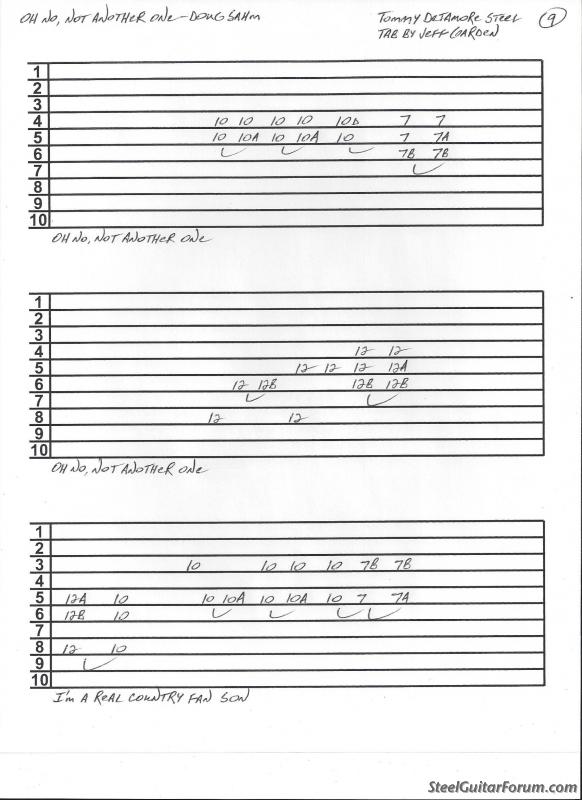 OH NO, NOT ANOTHER ONE - DOUG SAHM
TOMMY DETAMORE STEEL
TAB BY JEFF GARDEN
9
1
2
3
4 10 10 10 10 10D 7 7
5 10 10A 10 10A 10 7 7A
6 7B 7B
7
8
9
10
OH NO, NOT ANOTHER ONE
1
2
3
4 12 12
5 12 12 12 12A
6 12 12B 12B 12B
7
8 12 12
9
10
OH NO, NOT ANOTHER ONE
1
2
3 10 10 10 10 7B 7B
4
5 12A 10 10 10A 10 10A 10 7 7A
6 12B 10
7
8 12 10
9
10
I'm A REAL COUNTRY FAN SON
SteelGuitarForum.com